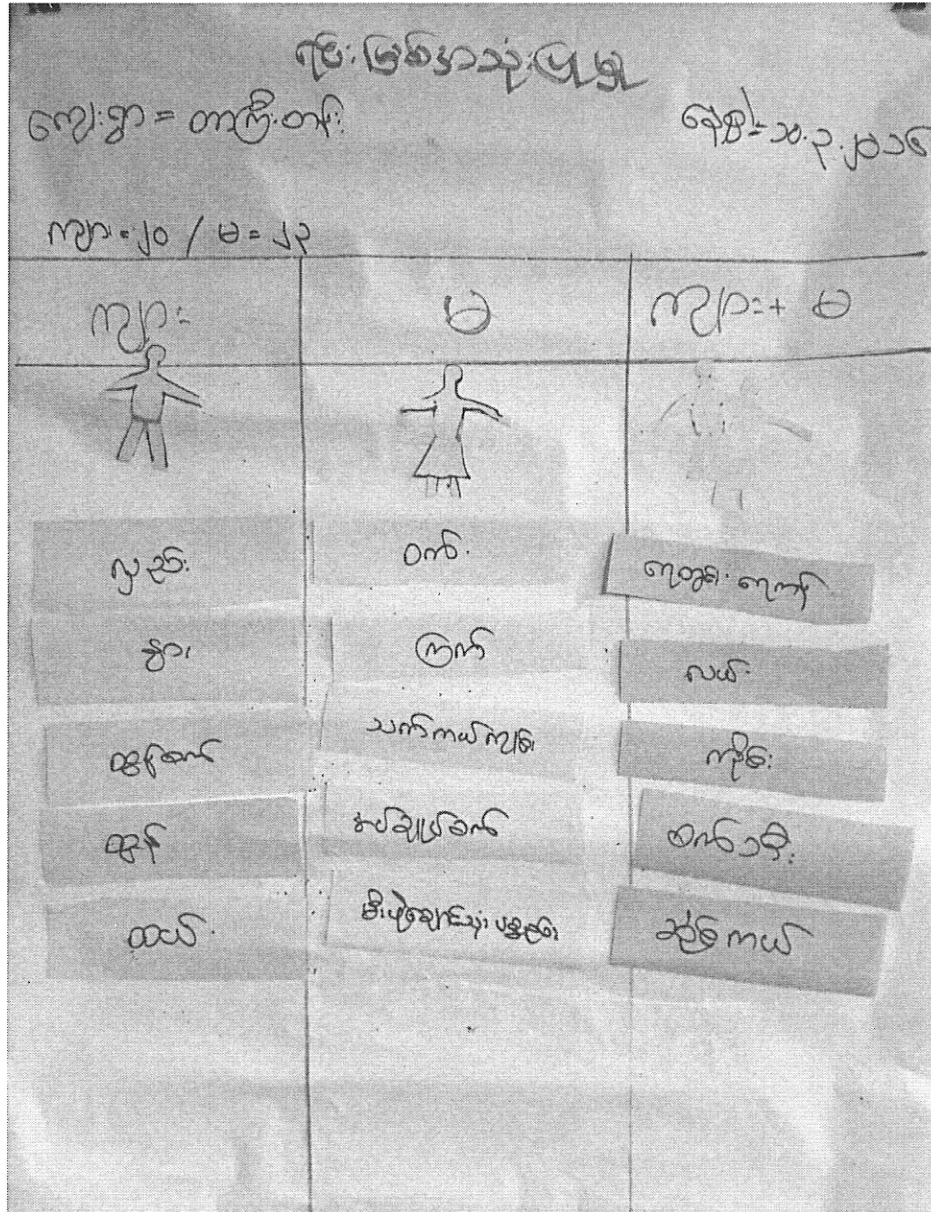 ရင်းမြစ်အသုံးပြုမှု
ကျေးရွာ = တာကြီးတန်း နေ့စွဲ = ၃.၂၀၁၆
ကျား = ၂၀ / မ = ၂၃
ကျား မ ကျား + မ
လှည်း ဝက် ရေတွင်း ရေကန်
နွား ကြက် လယ်
ထွန်စက် သက်ကယ်ကျစ် ကိုင်း
ထွန် အပ်ချုပ်စက် စက်ဘီး
ထယ် မီးဖိုချောင်သုံး ပစ္စည်း ဆိုင်ကယ်